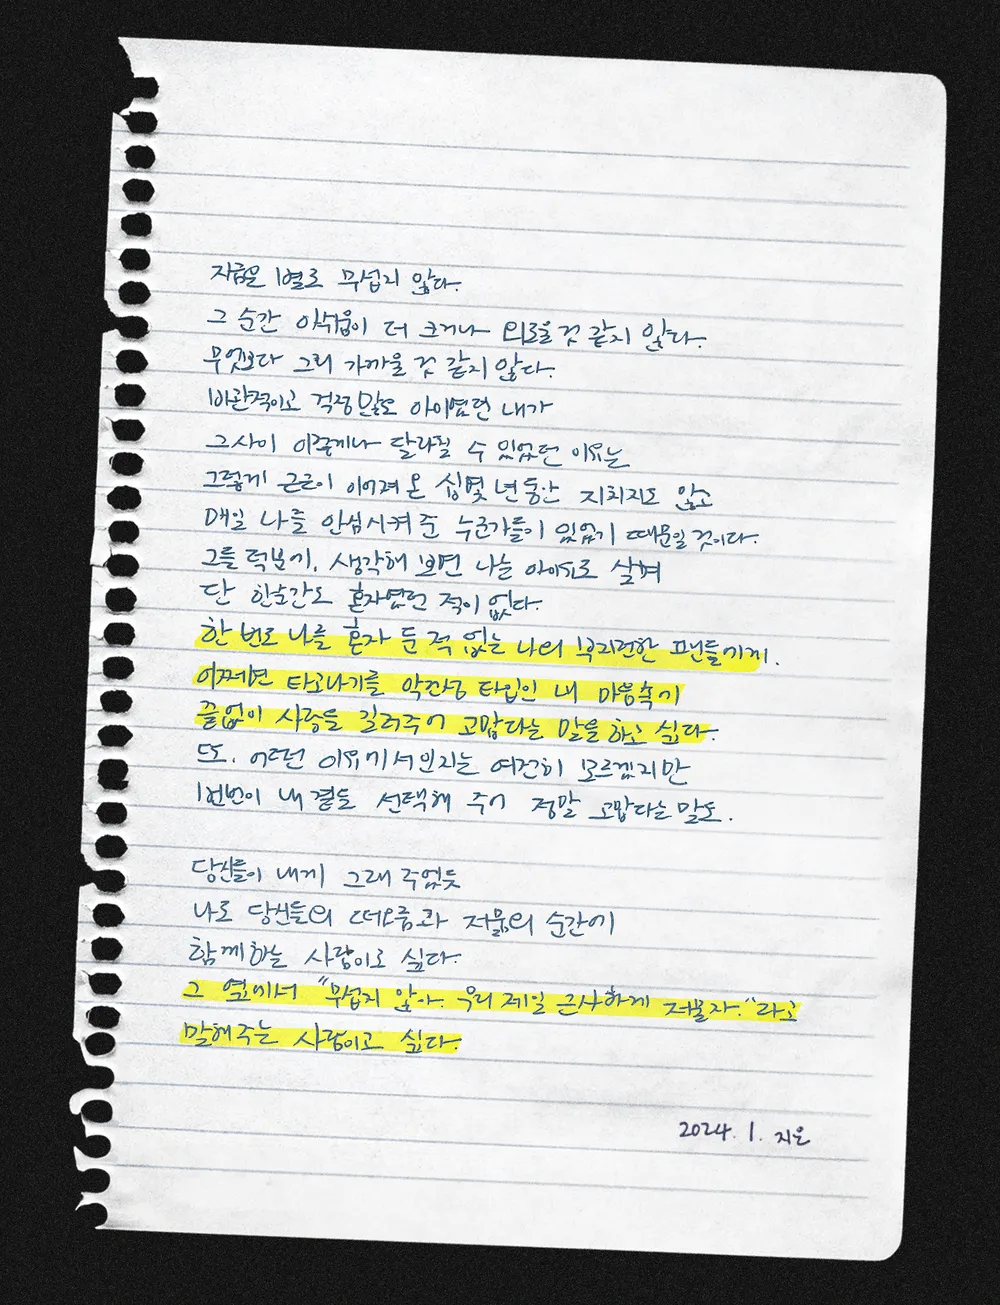 지금은 별로 무섭지 않다.
그 순간 아쉬움이 더 크거나 외로울 것 같지 않다.
무엇보다 그리 가까울 것 같지 않다.
비관적이고 걱정 많은 아이였던 내가
그사이 이렇게나 달라질 수 있었던 이유는
그렇게 근근이 이어져 온 십몇 년 동안 지치지도 않고
매일 나를 안심시켜 준 누군가들이 있었기 때문일 것이다.
그들 덕분에, 생각해 보면 나는 아이유로 살며
단 한순간도 혼자였던 적이 없다.
한 번도 나를 혼자 둔 적 없는 나의 부지런한 팬들에게.
어쩌면 타고나기를 악건성 타입인 내 마음속에
끝없이 사랑을 길러주어 고맙다는 말을 하고 싶다.
또, 어떤 이유에서인지는 여전히 모르겠지만
번번이 내 곁을 선택해 주어 정말 고맙다는 말도.
당신들이 내게 그래 주었듯
나도 당신들의 떠오름과 저묾의 순간에
함께하는 사람이고 싶다.
그 옆에서 "무섭지 않아. 우리 제일 근사하게 저물자."라고
말해주는 사람이고 싶다.
2024. 1. 지은